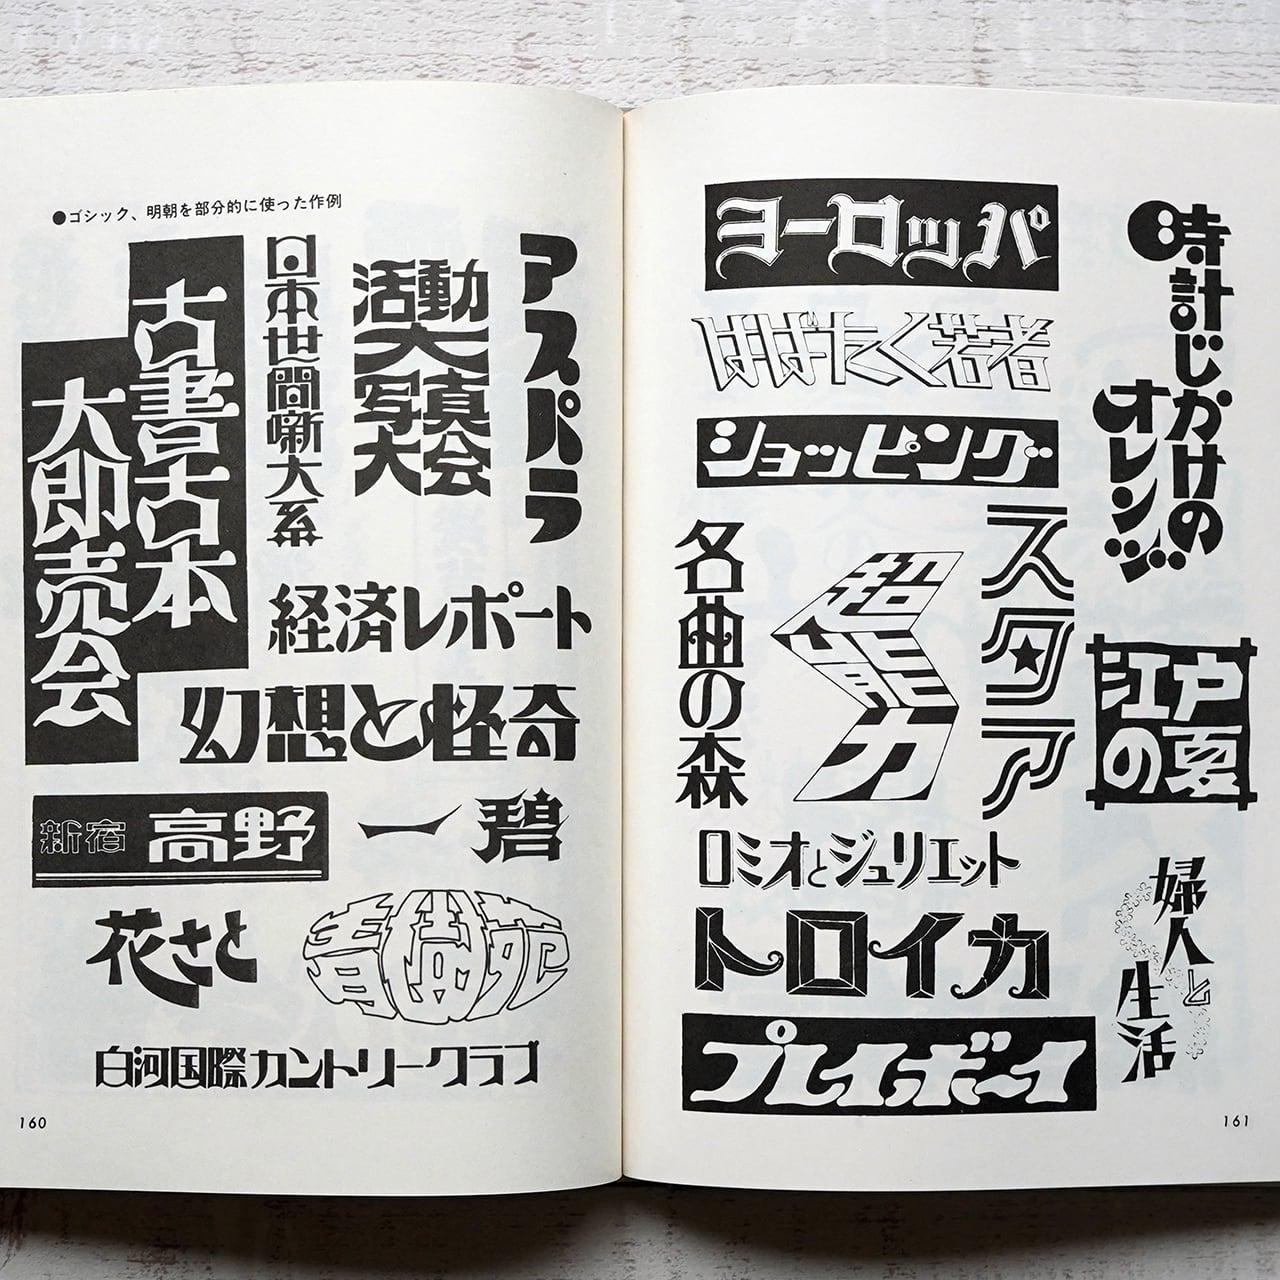 ●ゴシック、明朝を部分的に使った作例
古書古本
大即売会
日本世間噺大系
活動
大
写真
大会
アスパラ
経済レポート
幻想と怪奇
新宿 高野
一碧
花さと
青樹苑
白河国際カントリークラブ
160
ヨーロッパ
はばたく若者
ショッピング
時計じかけの
オレンジ
名曲の森
超能力
スタア
江戸
の夏
ロミオとジュリエット
トロイカ
プレイボーイ
婦人と
生活
161